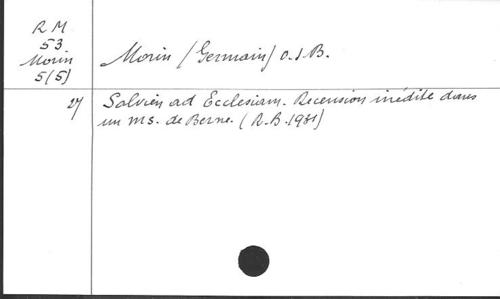 R M
53
Morin
5(5)
Morin (Germain) O.S.B.
27
Salvien ad Ecclesiam. Recension inédite dans
un ms. de Berne. (R.B. 1931)